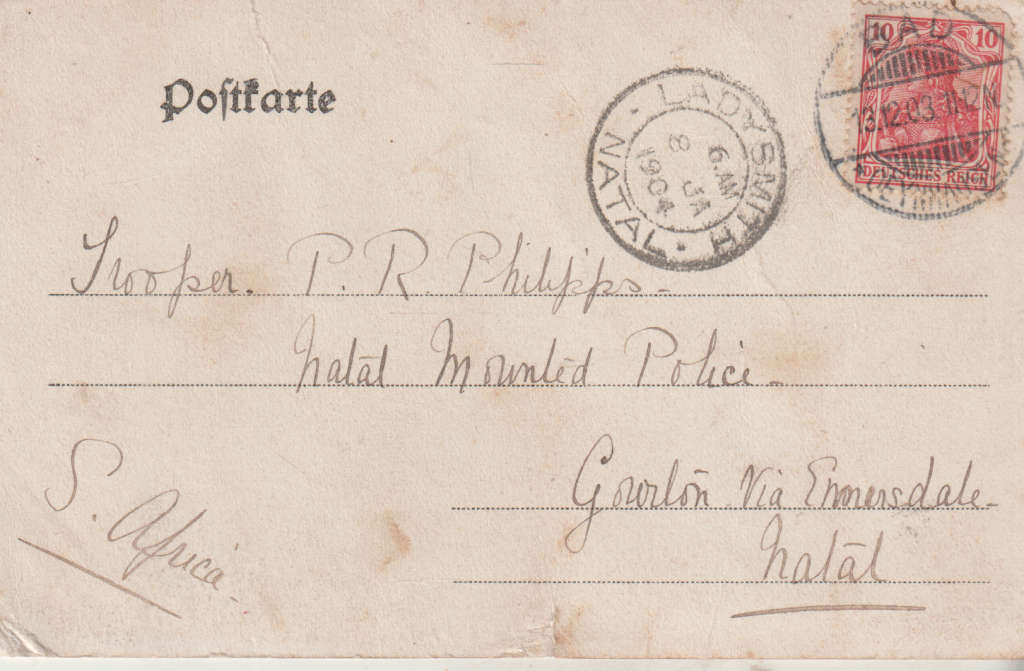 Postkarte
10 10
BAD
13.12.03. 11-12 V.
DEUTSCHES REICH
LADYSMITH
6. AM
8 JA
1904
NATAL
Trooper. P. R. Philipps-
Natal Mounted Police-
Gourton Via Ennersdale-
Natal
S. Africa-